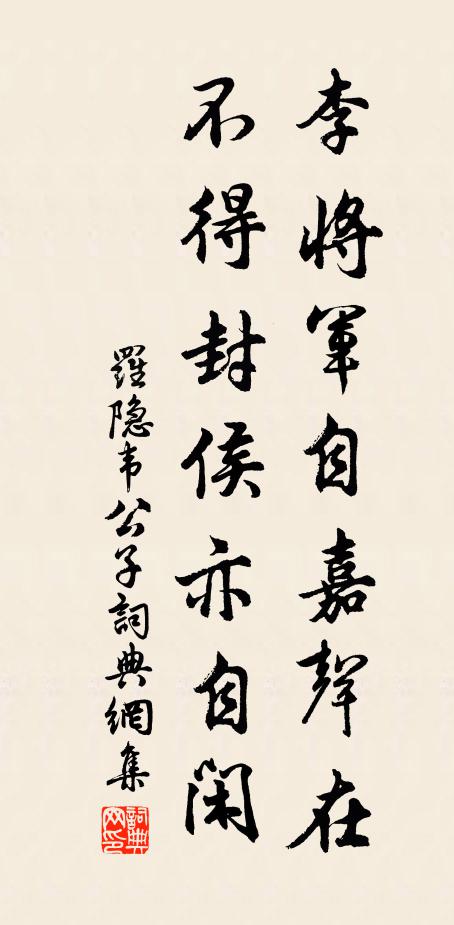 李將軍自嘉聲在
不得封侯亦自閑
羅隐韦公子詞典網集
詞典网印